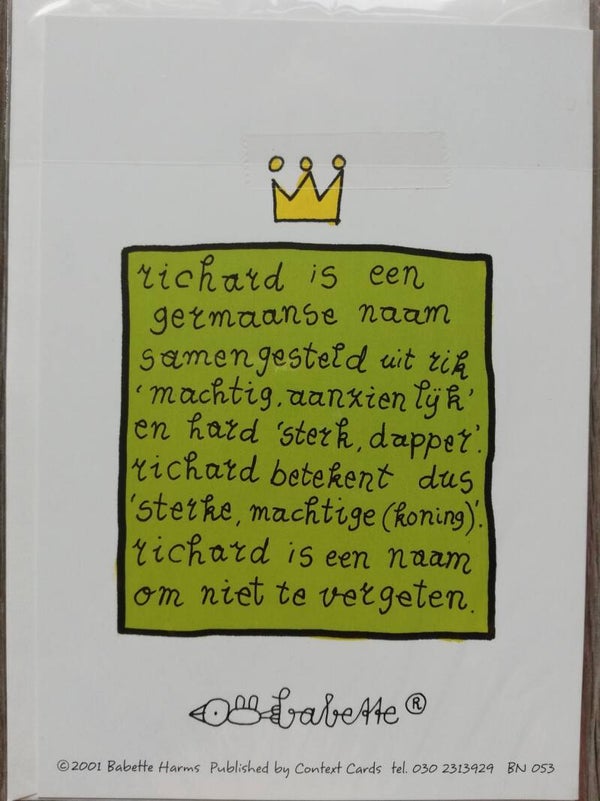 richard is een
germaanse naam
samengesteld uit rik
'machtig, aanzienlijk'
en hard 'sterk, dapper'.
richard betekent dus
'sterke, machtige (koning)'.
richard is een naam
om niet te vergeten.
babette®
©2001 Babette Harms Published by Context Cards tel. 030 2313929 BN 053